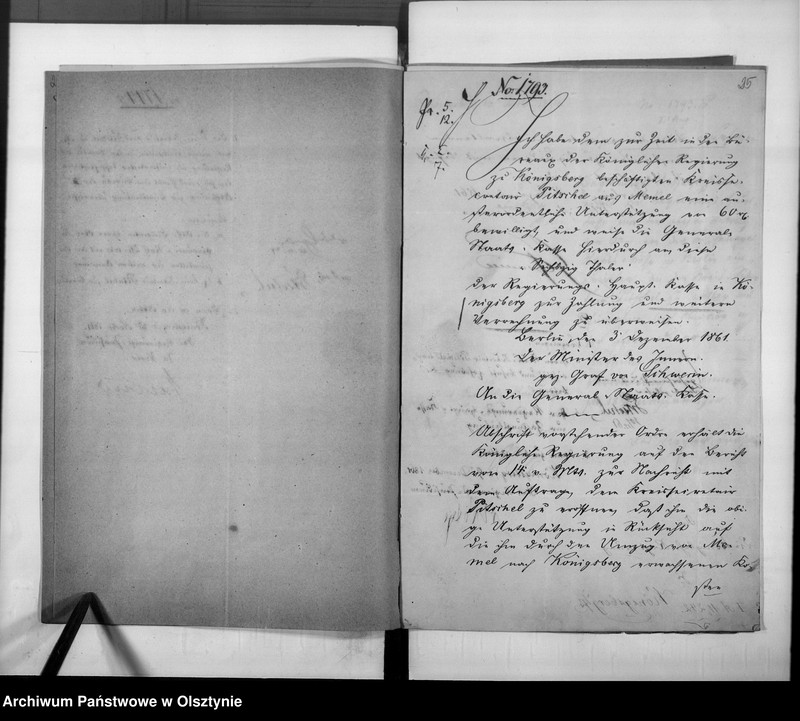 35
No 1793.
Pr. 5.
12.
Ich habe dem zur Zeit in den Bü-
reaux der Königlichen Regierung
zu Königsberg beschäftigten Kreisse-
cretair Pitschel aus Memel eine au-
ßerordentliche Unterstützung von 60 rt
bewilligt und weise die General
Staats-Kasse hierdurch an, diese
"Sechszig Thaler"
der Regierungs-Haupt-Kasse in Kö-
nigsberg zur Zahlung und weitern
Verrechnung zu überweisen.
Berlin, den 3 Dezember 1861.
Der Minister des Innern.
gez. Graf von Schwerin.
An die General-Staats-Kasse.
Abschrift vorstehender Ordre erhält die
Königliche Regierung auf den Bericht
vom 14. v. Mts. zur Nachricht mit
dem Auftrage, dem Kreissecretair
Pitschel zu eröffnen, daß ihm die obi-
ge Unterstützung in Rücksicht auf
die ihm durch den Umzug von Me-
mel nach Königsberg erwachsenen Ko-
sten
Archiwum Państwowe w Olsztynie